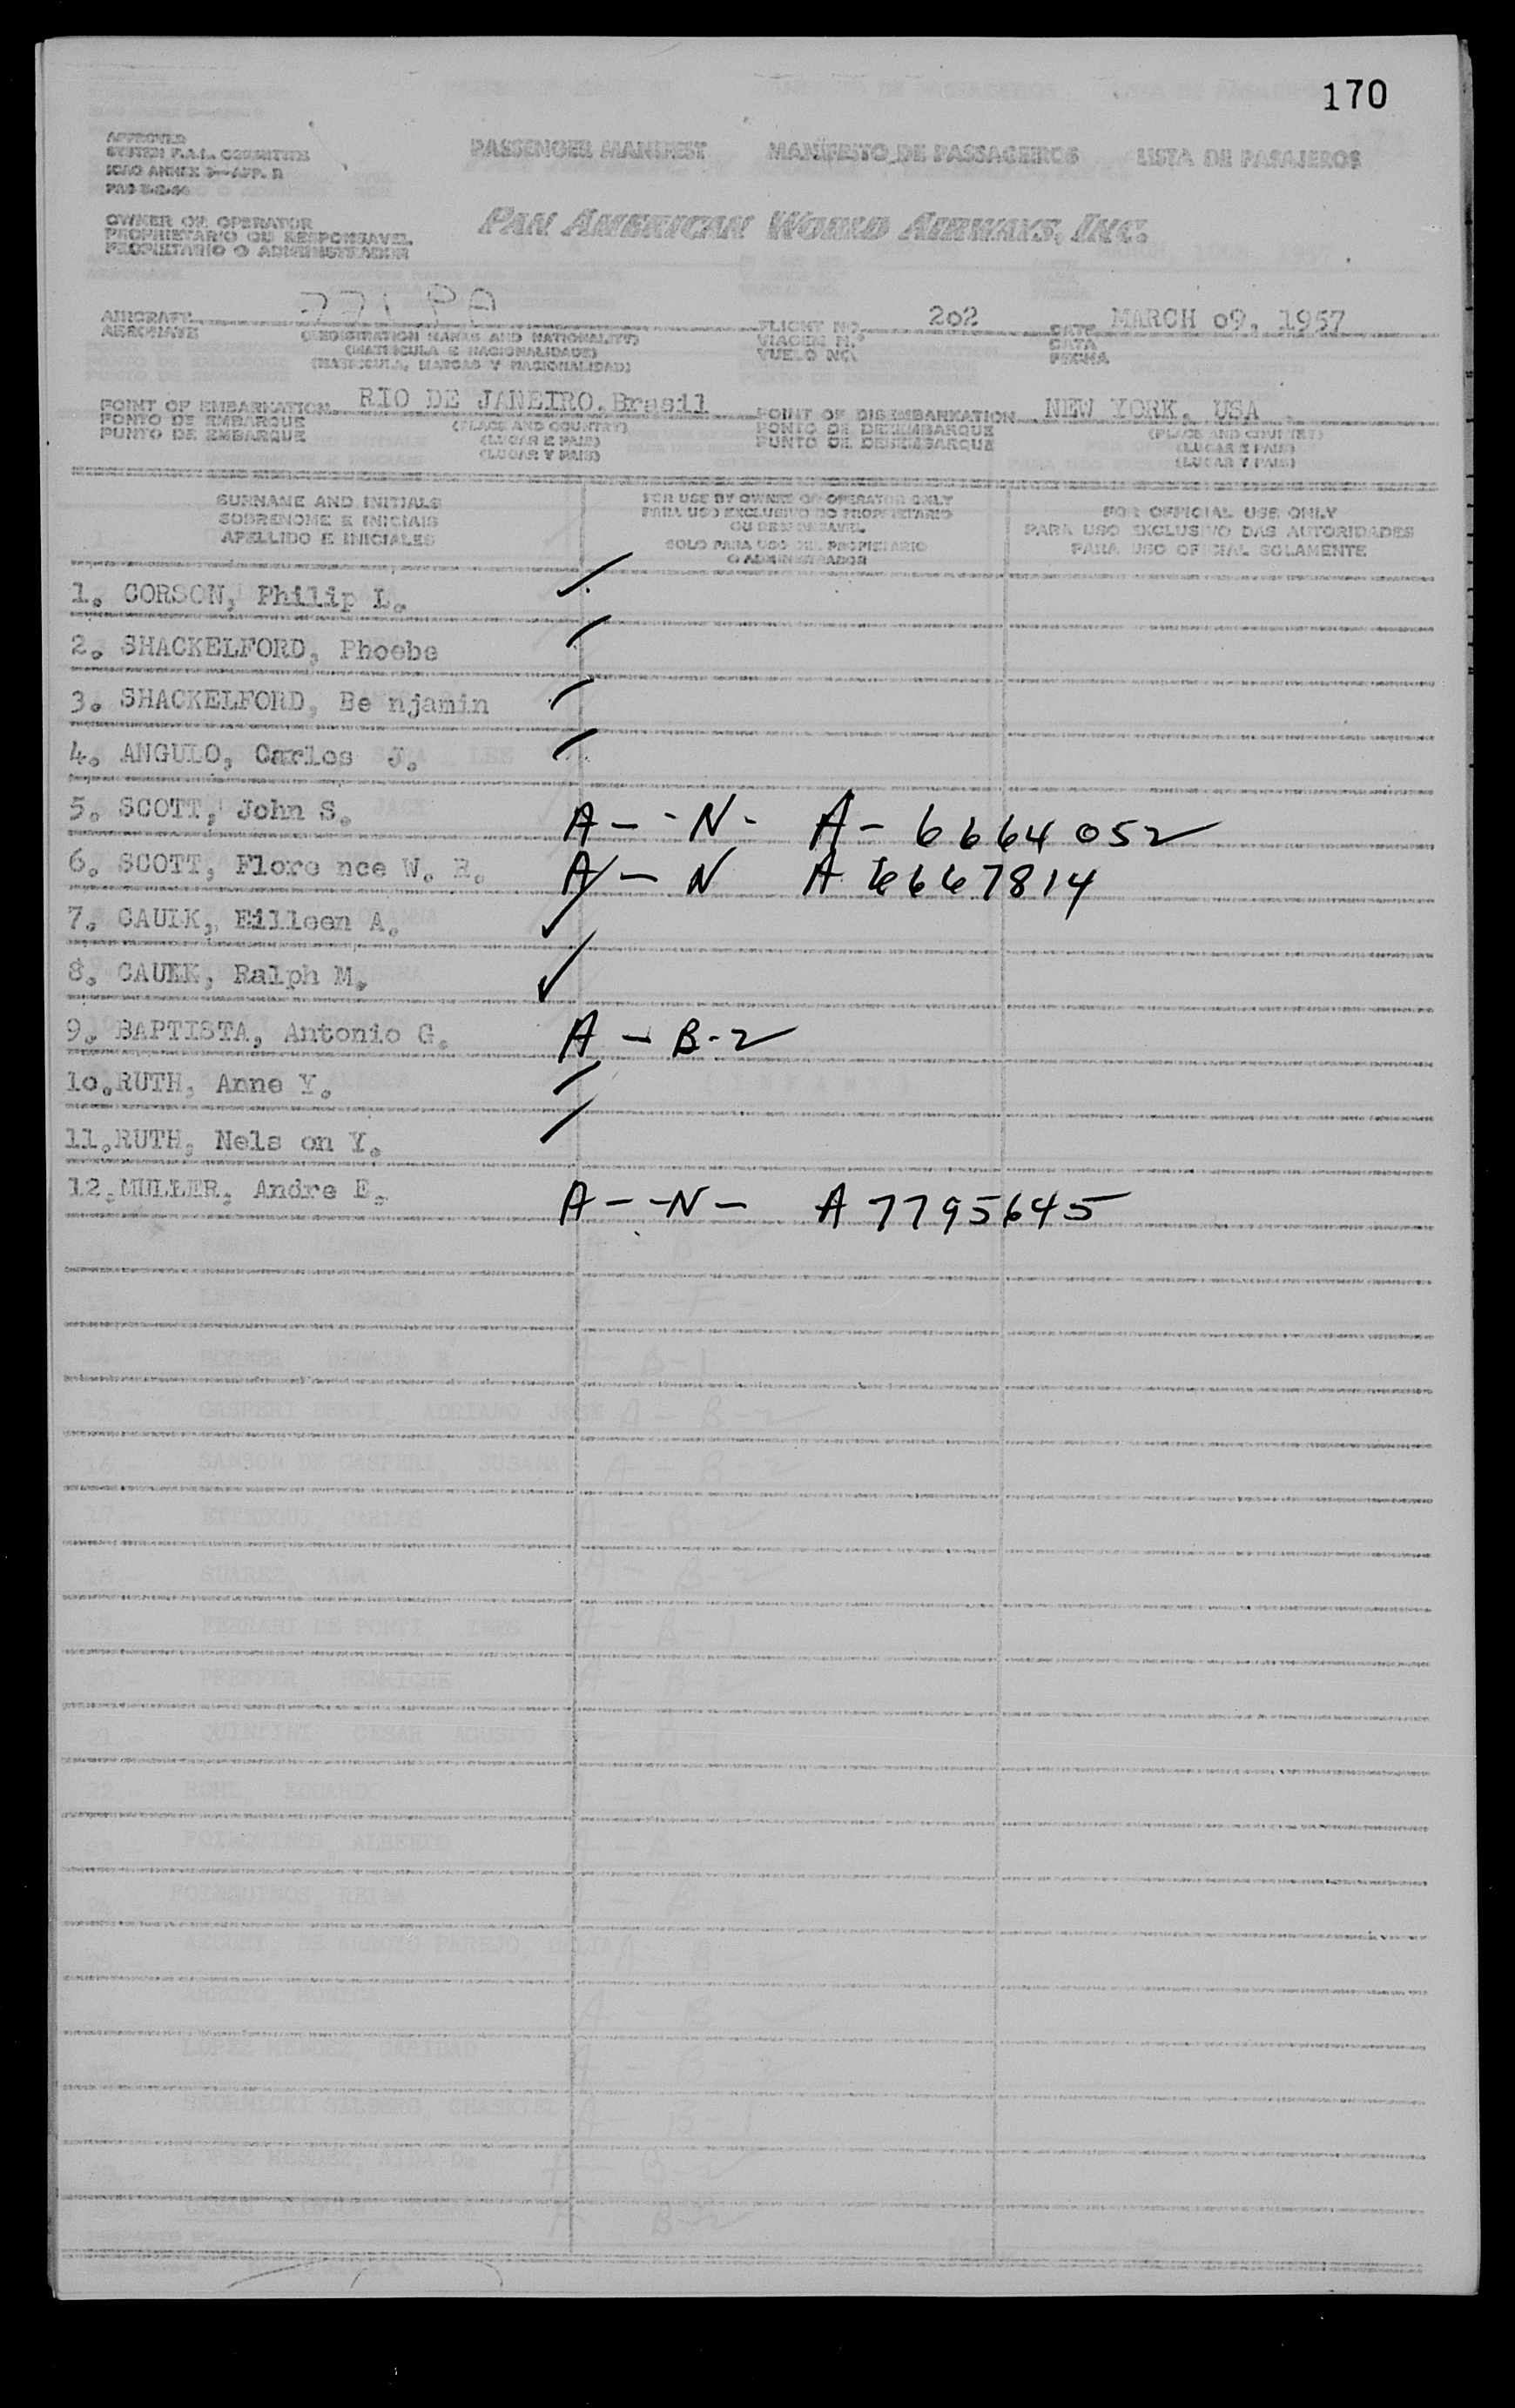 170
APPROVED
SYSTEM F.A.L. COMMITTEE
ICAO ANNEX 9—APP. B
PASSENGER MANIFEST MANIFESTO DE PASSAGEIROS LISTA DE PASAJEROS
OWNER OR OPERATOR
PROPRIETARIO OU RESPONSAVEL
PROPIETARIO O ADMINISTRADOR
PAN AMERICAN WORLD AIRWAYS, INC.
AIRCRAFT 771 PA FLIGHT NO. 202 DATE MARCH 09, 1957
AERONAVE (REGISTRATION MARKS AND NATIONALITY) VIAGEM N.º DATA
(MATRICULA E NACIONALIDADE) VUELO NO. FECHA
(MATRICULA, MARCAS Y NACIONALIDAD)
POINT OF EMBARKATION RIO DE JANEIRO.Brasil POINT OF DISEMBARKATION NEW YORK, USA
PONTO DE EMBARQUE (PLACE AND COUNTRY) PONTO DE DESEMBARQUE (PLACE AND COUNTRY)
PUNTO DE EMBARQUE (LUGAR E PAIS) PUNTO DE DESEMBARQUE (LUGAR E PAIS)
(LUGAR Y PAIS) (LUGAR Y PAIS)
SURNAME AND INITIALS
SOBRENOME E INICIAIS
APELLIDO E INICIALES
FOR USE BY OWNER OR OPERATOR ONLY
PARA USO EXCLUSIVO DO PROPRIETARIO
OU RESPONSAVEL
SOLO PARA USO DEL PROPIETARIO
O ADMINISTRADOR
FOR OFFICIAL USE ONLY
PARA USO EXCLUSIVO DAS AUTORIDADES
PARA USO OFICIAL SOLAMENTE
1. CORSON, Philip L.
2. SHACKELFORD, Phoebe
3. SHACKELFORD, Be njamin
4. ANGULO, Carlos J.
5. SCOTT, John S. A - - N - A - 6664052
6. SCOTT, Flore nce W. R. A - N A 6667814
7. CAULK, Eilleen A.
8. CAULK, Ralph M.
9. BAPTISTA, Antonio G. A - B-2
10.RUTH, Anne Y.
11.RUTH, Nels on Y.
12.MULLER, Andre E. A - - N - A 7795645